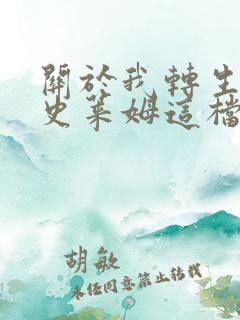 關於我轉生
史萊姆這檔
胡敏
未经同意禁止转载